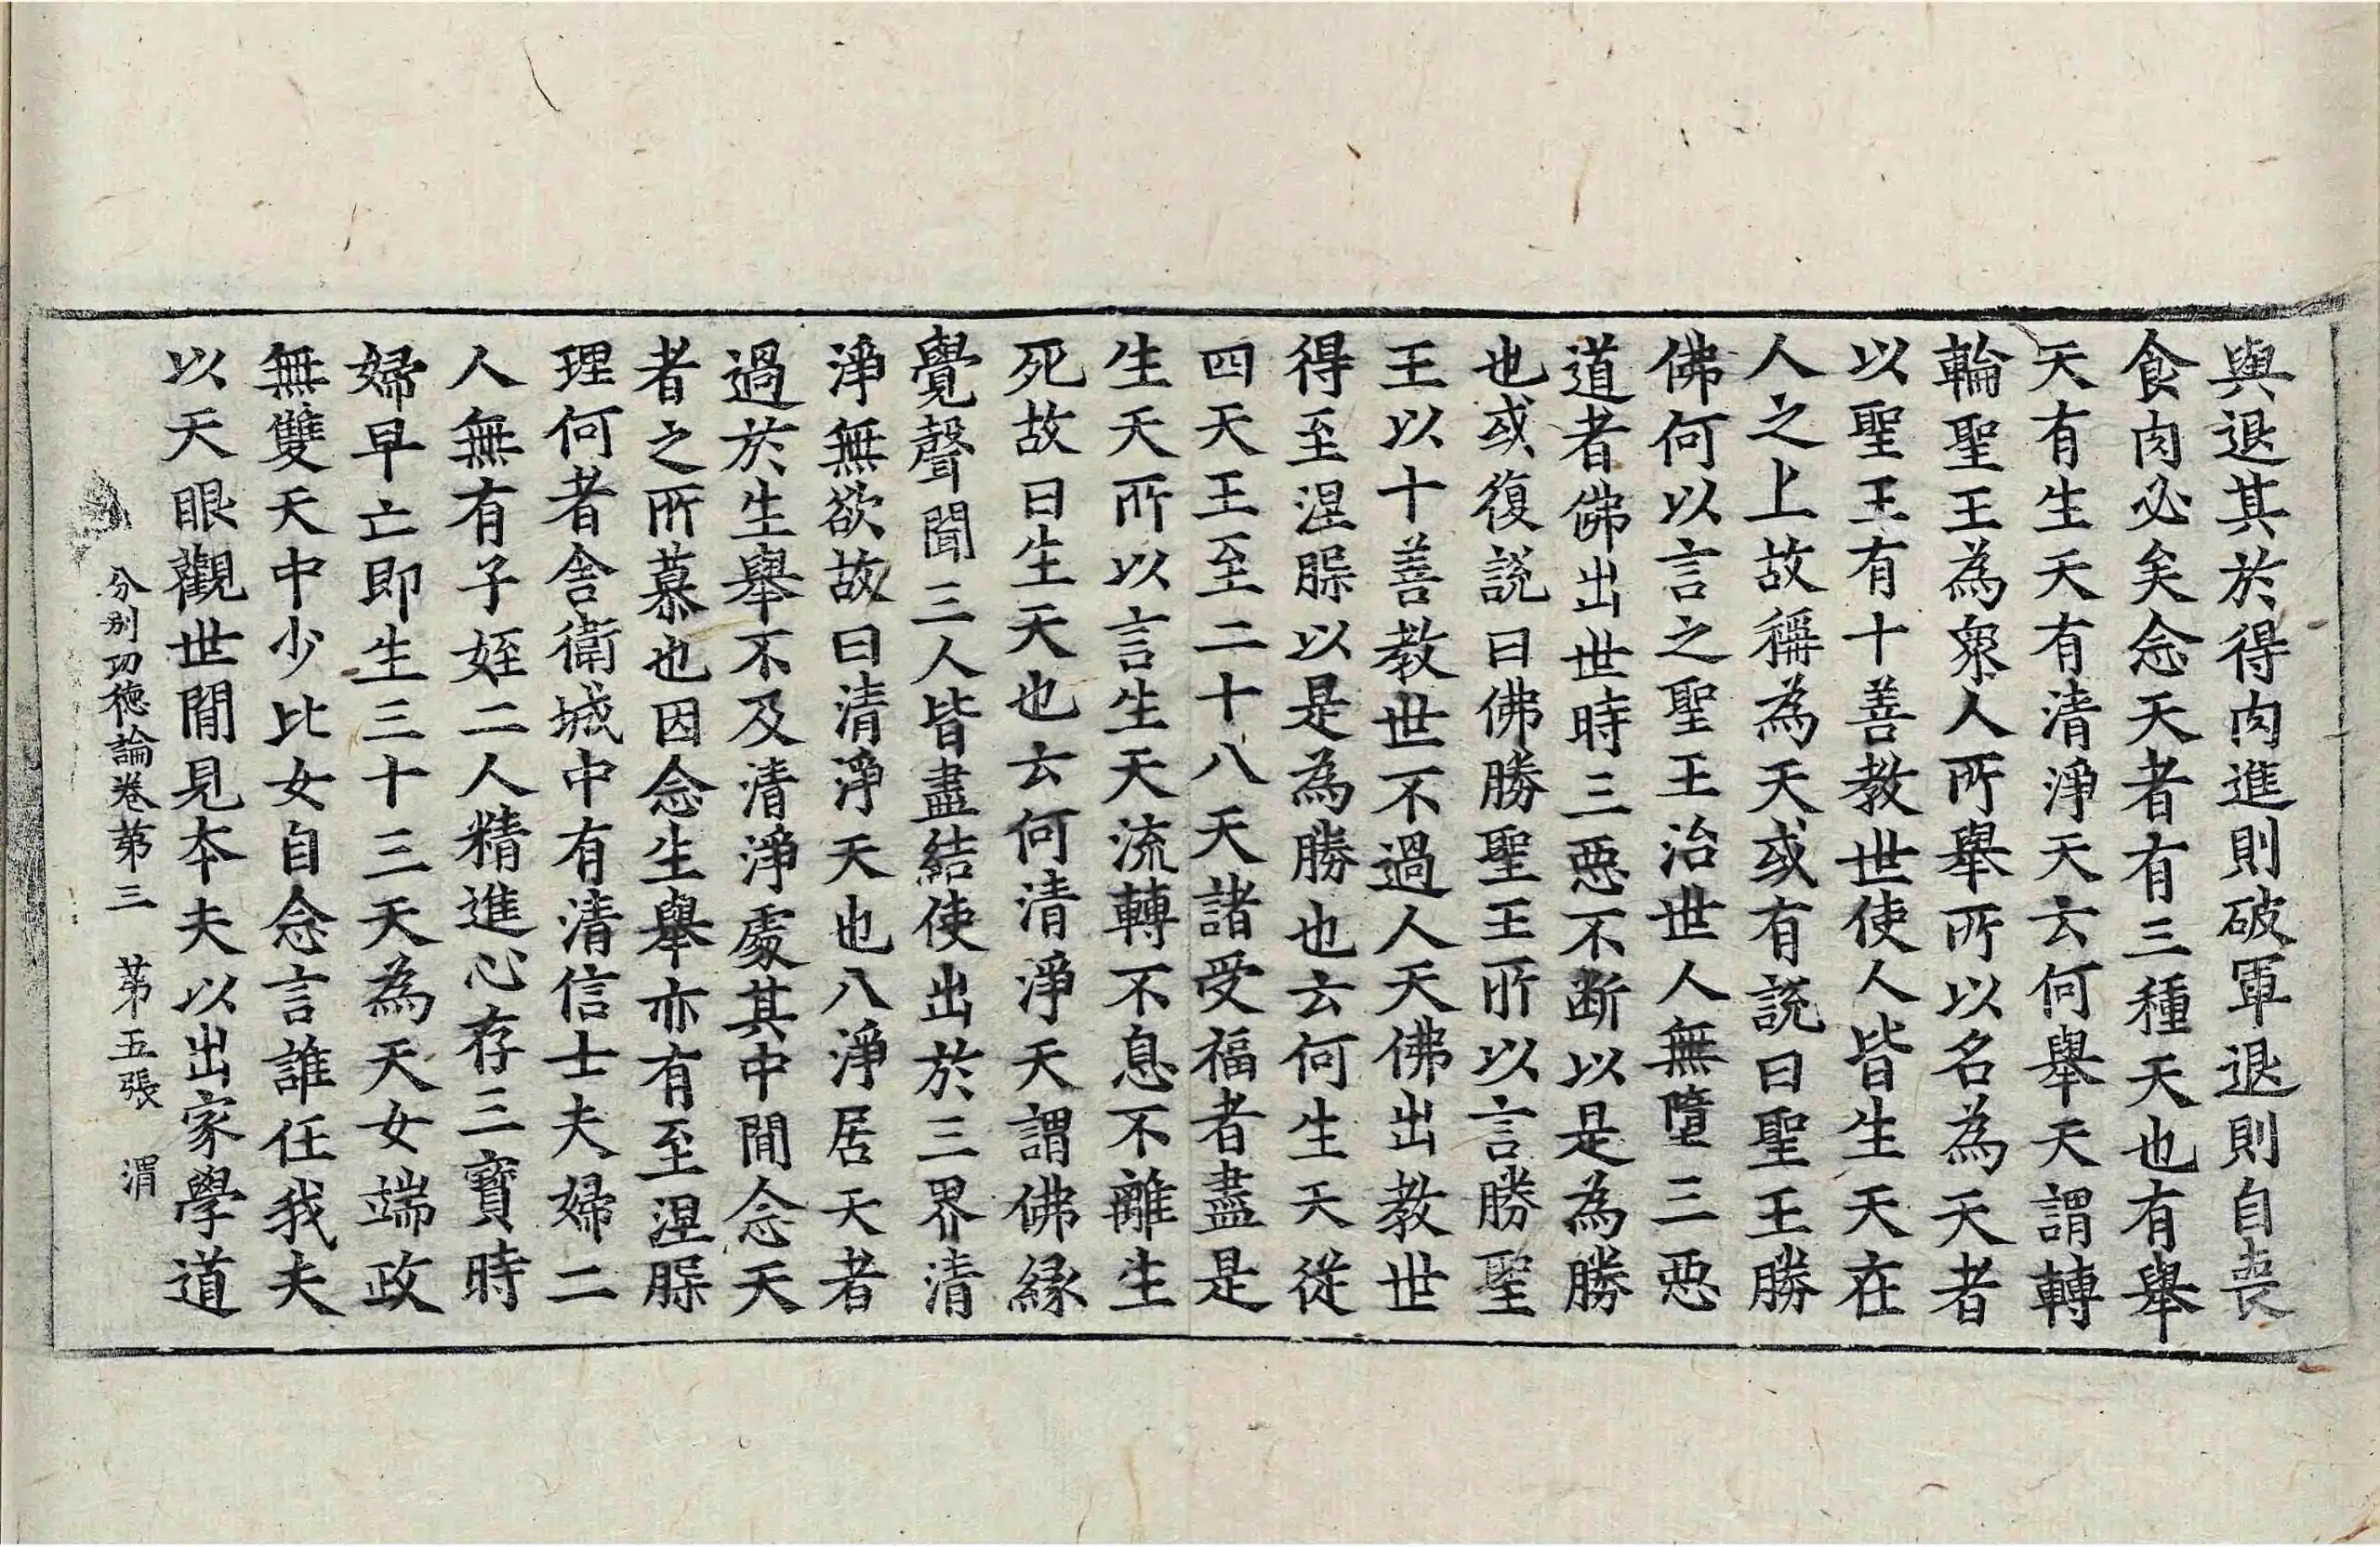 輿退其於得肉進則破軍退則自喪
食肉必矣念天者有三種天也有舉
天有生天有清淨天云何舉天謂轉
輪聖王為衆人所舉所以名為天者
以聖王有十善教世使人皆生天在
人之上故稱為天或有說曰聖王勝
佛何以言之聖王治世人無墮三惡
道者佛出世時三惡不斷以是為勝
也或復說曰佛勝聖王所以言勝聖
王以十善教世不過人天佛出教世
得至涅槃以是為勝也云何生天從
四天王至二十八天諸受福者盡是
生天所以言生天流轉不息不離生
死故曰生天也云何清淨天謂佛緣
覺聲聞三人皆盡結使出於三界清
淨無欲故曰清淨天也八淨居天者
過於生舉不及清淨處其中間念天
者之所慕也因念生舉亦有至涅槃
理何者舍衛城中有清信士夫婦二
人無有子姪二人精進心存三寶時
婦早亡即生三十三天為天女端政
無雙天中少比女自念言誰任我夫
以天眼觀世間見本夫以出家學道
分別功德論卷第三　第五張　渭